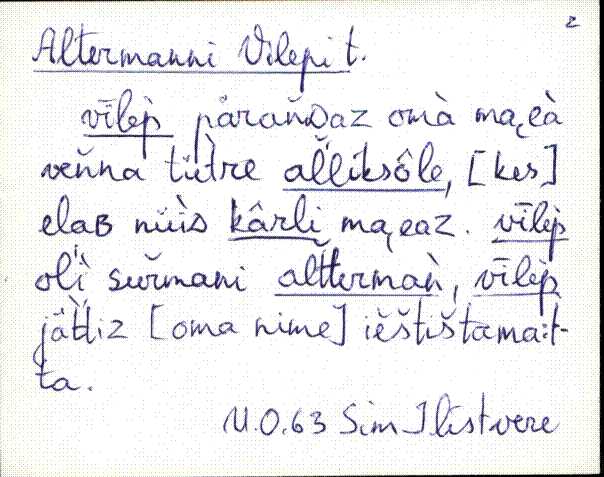 2
Altermanni Vilepi t.
vīlèp̀ pȧrañDaz omà ma̧eà
veñna tüt̀re al̆liksôle, [kes]
elaB nüüs kârli ma̧eaz. vīlèp̀
olì sur̆mani alt̆termaǹ, vīlèp̀
jät̆tiz [oma nime] iěštištama:t-
ta.
M.O.63 Sim J